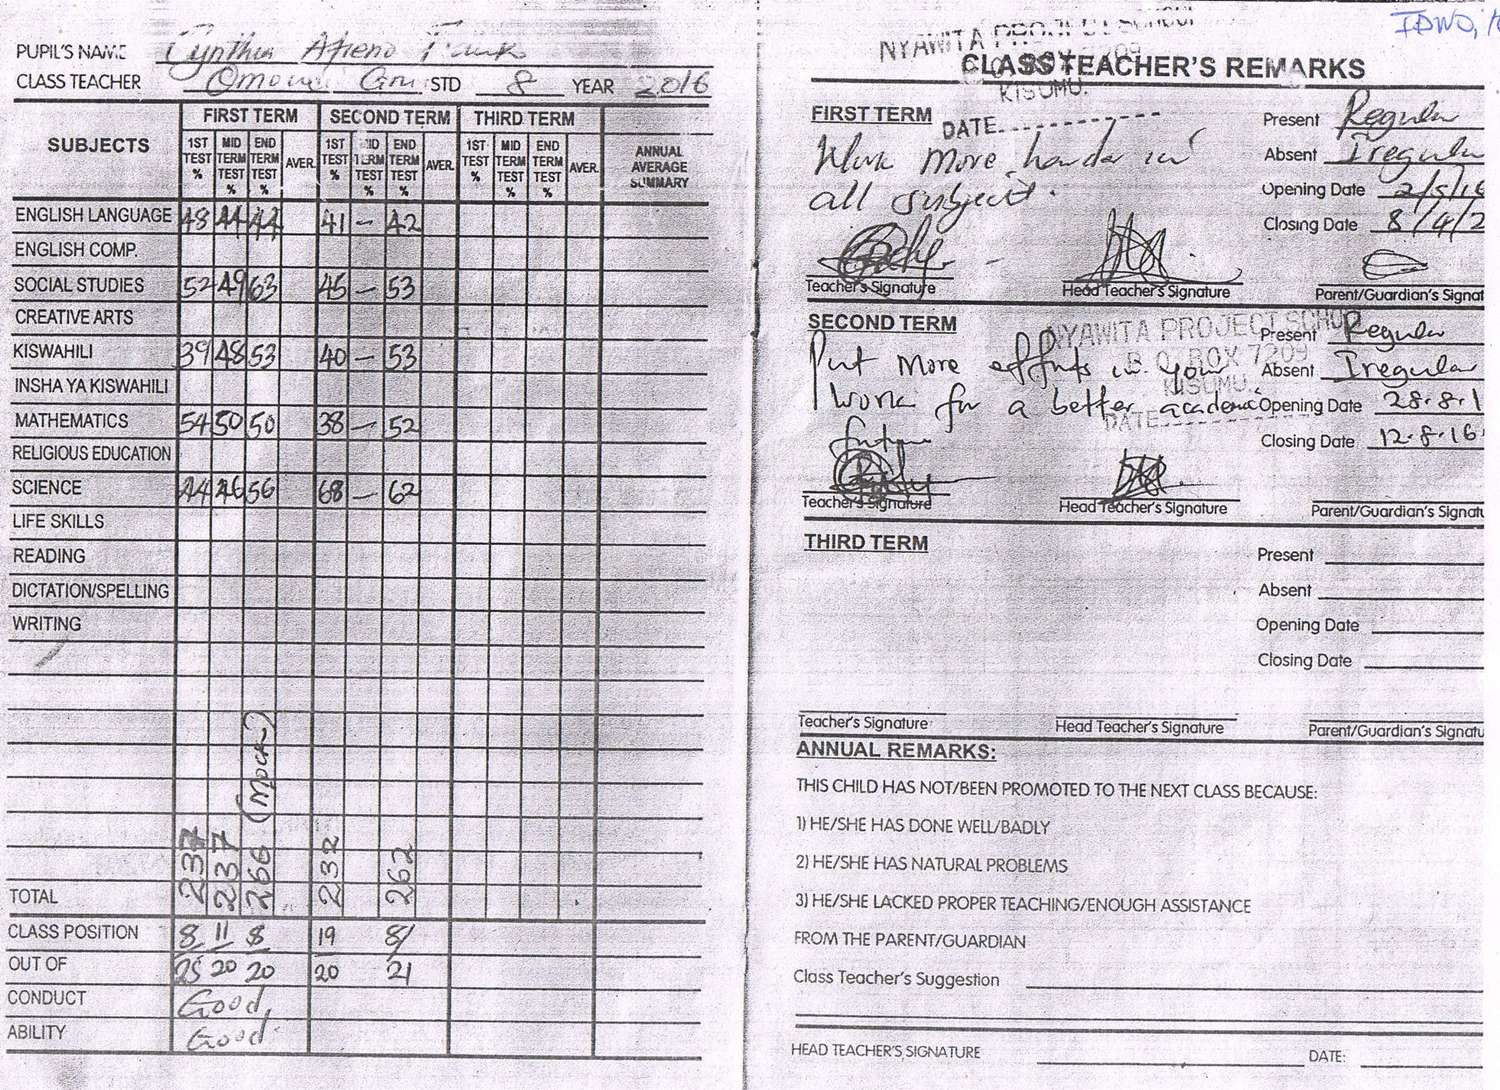 IDNO,
PUPIL'S NAME Cynthia Atieno
CLASS TEACHER STD 8 YEAR 2016
SUBJECTS FIRST TERM SECOND TERM THIRD TERM
1ST TEST % MID TERM TEST % END TERM TEST % AVER. 1ST TEST % MID TERM TEST % END TERM TEST % AVER. 1ST TEST % MID TERM TEST % END TERM TEST % AVER. ANNUAL AVERAGE SUMMARY
ENGLISH LANGUAGE 48 44 44 41 - 42
ENGLISH COMP.
SOCIAL STUDIES 52 49 63 45 - 53
CREATIVE ARTS
KISWAHILI 39 48 53 40 - 53
INSHA YA KISWAHILI
MATHEMATICS 54 50 50 38 - 52
RELIGIOUS EDUCATION
SCIENCE 44 46 56 68 - 62
LIFE SKILLS
READING
DICTATION/SPELLING
WRITING
(Mock)
TOTAL 237 237 266 232 262
CLASS POSITION 8 11 8 19 8
OUT OF 25 20 20 20 21
CONDUCT Good
ABILITY Good
NYAWITA PROJECT SCHOOL
7209
KISUMU.
DATE
CLASS TEACHER'S REMARKS
FIRST TERM
Work more harder in
all subject.
Present Regular
Absent Iregular
Opening Date 2/5/16
Closing Date 8/4/2
Teacher's Signature Head Teacher's Signature Parent/Guardian's Signat
SECOND TERM
NYAWITA PROJECT SCHOOL
P.O. BOX 7209
KISUMU.
DATE
Put more efforts in your
work for a better academic
future
Present Regular
Absent Iregular
Opening Date 28.8.1
Closing Date 12.8.16
Teacher's Signature Head Teacher's Signature Parent/Guardian's Signatu
THIRD TERM
Present
Absent
Opening Date
Closing Date
Teacher's Signature Head Teacher's Signature Parent/Guardian's Signatu
ANNUAL REMARKS:
THIS CHILD HAS NOT/BEEN PROMOTED TO THE NEXT CLASS BECAUSE:
1) HE/SHE HAS DONE WELL/BADLY
2) HE/SHE HAS NATURAL PROBLEMS
3) HE/SHE LACKED PROPER TEACHING/ENOUGH ASSISTANCE
FROM THE PARENT/GUARDIAN
Class Teacher's Suggestion
HEAD TEACHER'S SIGNATURE DATE: